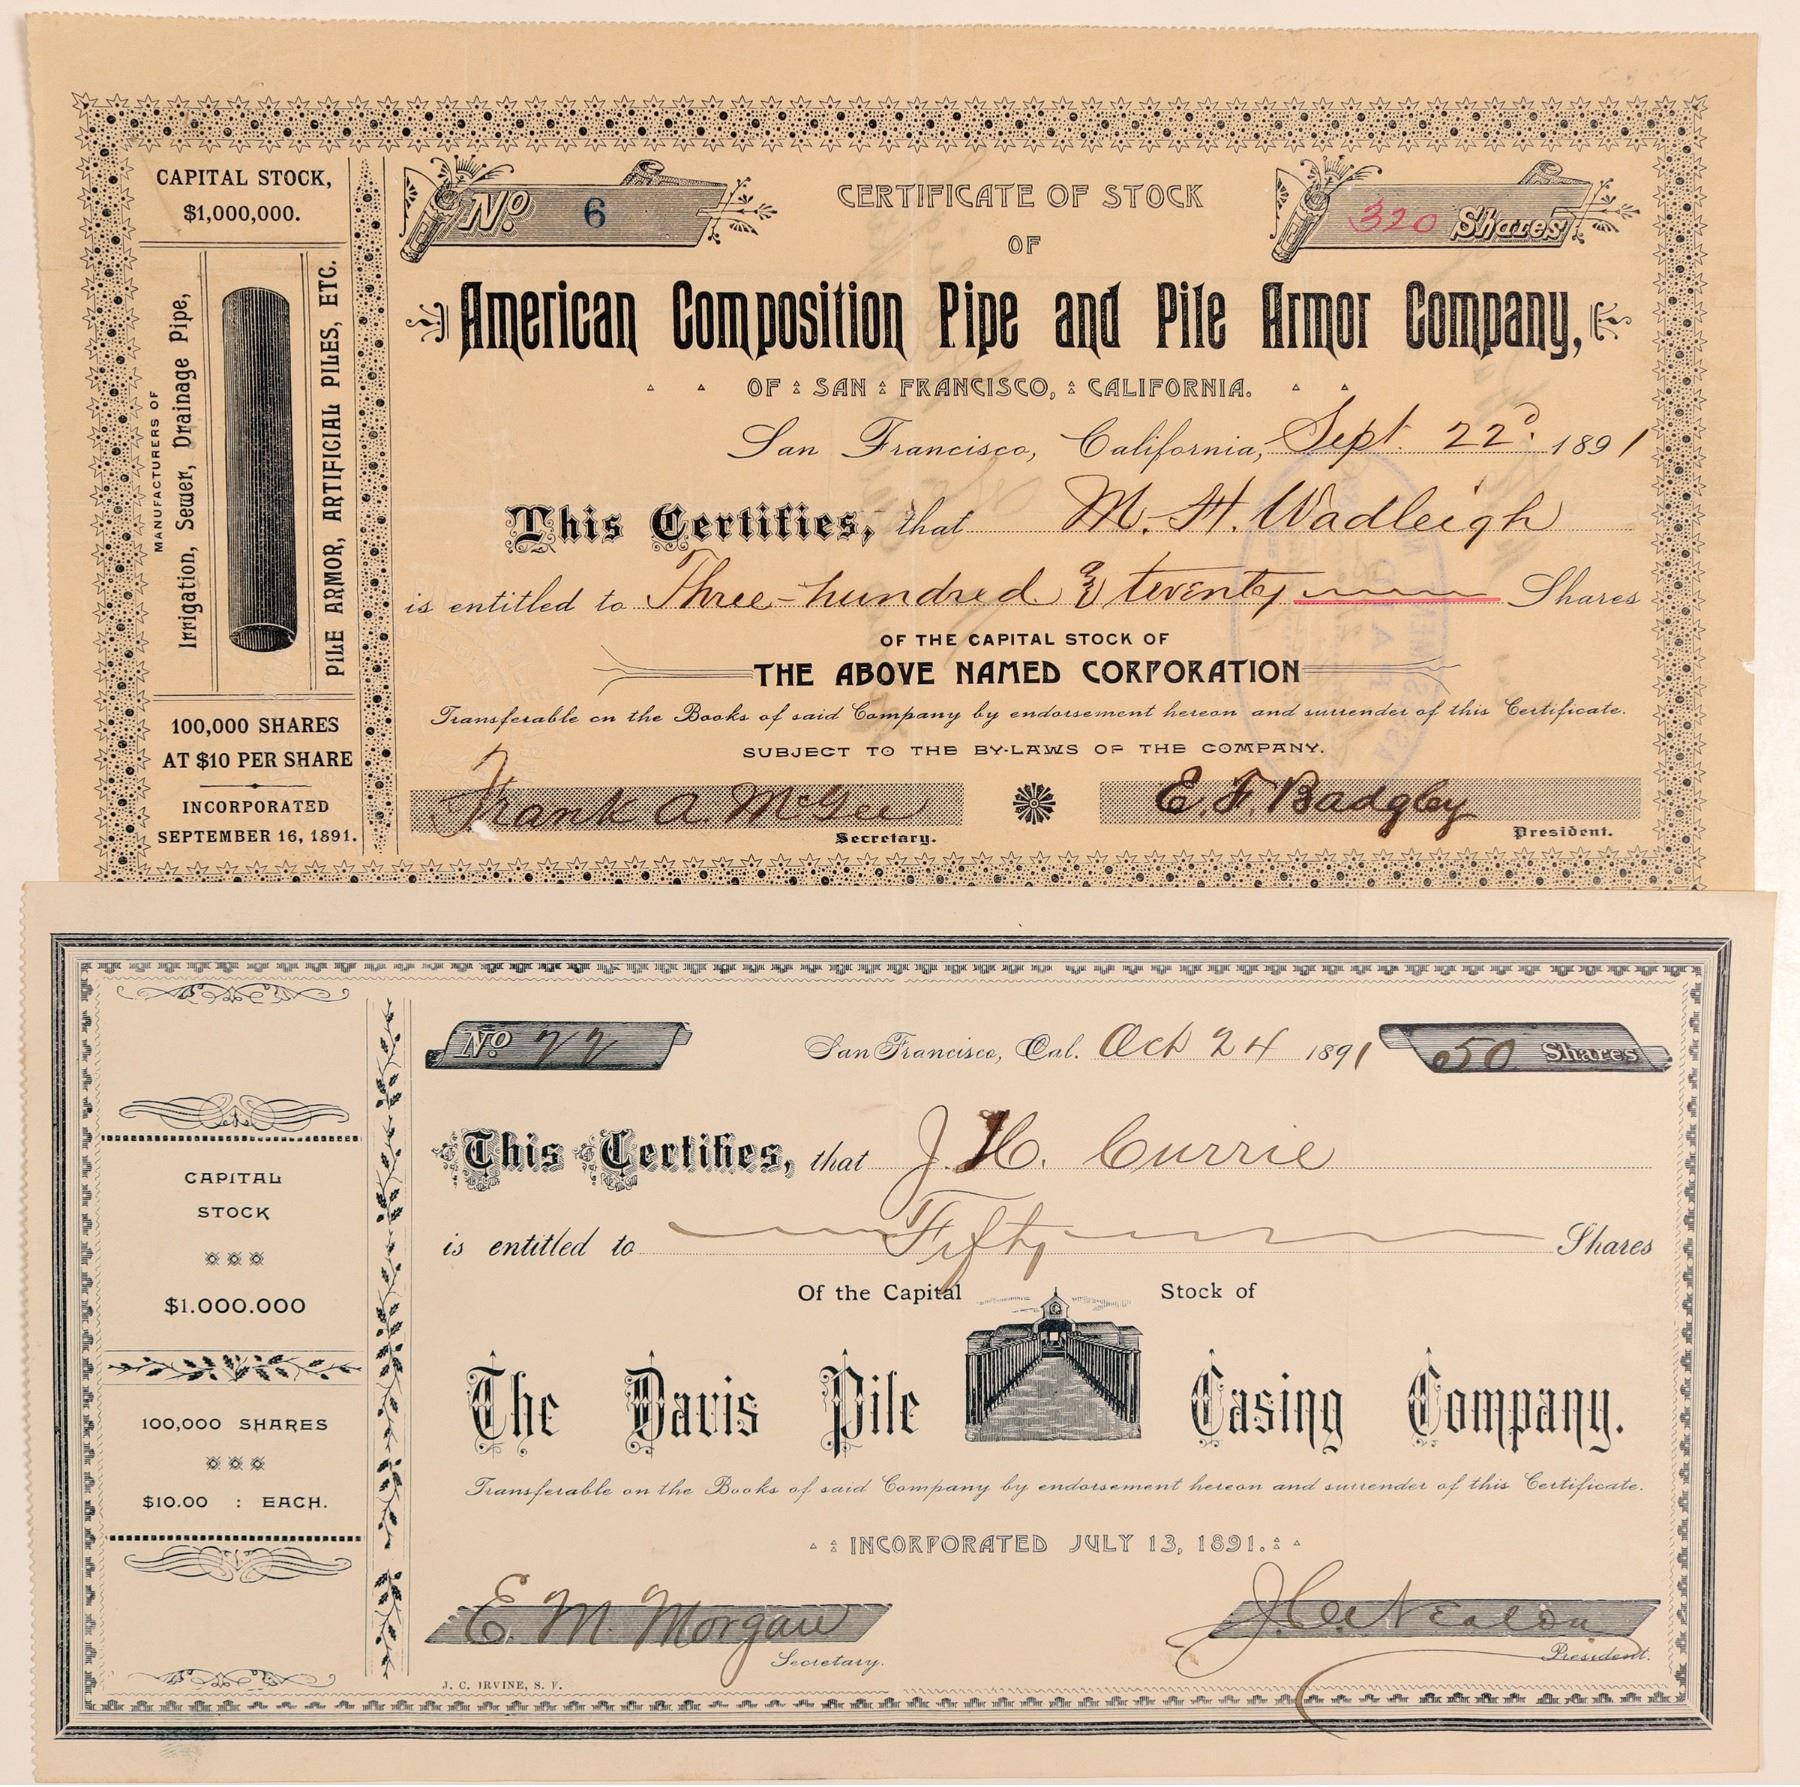 CAPITAL STOCK,
$1,000,000.
MANUFACTURERS OF
Irrigation, Sewer, Drainage Pipe,
PILE ARMOR, ARTIFICIAL PILES, ETC.
100,000 SHARES
AT $10 PER SHARE
INCORPORATED
SEPTEMBER 16, 1891.
No. 6
CERTIFICATE OF STOCK
320 Shares
OF
American Composition Pipe and Pile Armor Company,
OF SAN FRANCISCO, CALIFORNIA.
San Francisco, California, Sept. 22d. 1891
This Certifies, that M. H. Wadleigh
is entitled to Three-hundred & twenty Shares
OF THE CAPITAL STOCK OF
THE ABOVE NAMED CORPORATION
Transferable on the Books of said Company by endorsement hereon and surrender of this Certificate.
SUBJECT TO THE BY-LAWS OF THE COMPANY.
Frank A. McGee
Secretary.
E. F. Badgley
President.
CAPITAL
STOCK
$1.000.000
100,000 SHARES
$10.00 : EACH.
No 22
San Francisco, Cal. Oct 24 1891
50 Shares
This Certifies, that J. H. Currie
is entitled to Fifty Shares
Of the Capital Stock of
The Davis Pile Casing Company.
Transferable on the Books of said Company by endorsement hereon and surrender of this Certificate.
INCORPORATED JULY 13, 1891.
E. M. Morgan
Secretary.
President.
J. C. IRVINE, S. F.